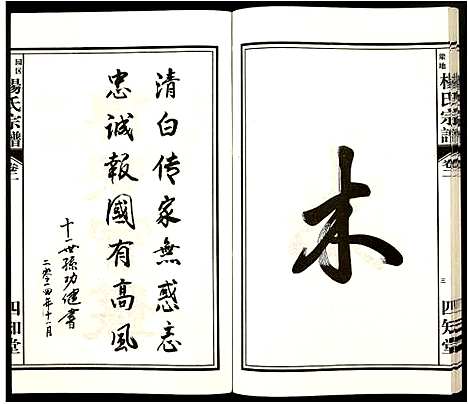 梁地
楊氏宗譜
卷一
三
四知堂
木
清白传家無惑忘
忠诚報國有高風
十一世孫功健書
二零一四年十一月
园区
楊氏宗譜
卷一
四知堂